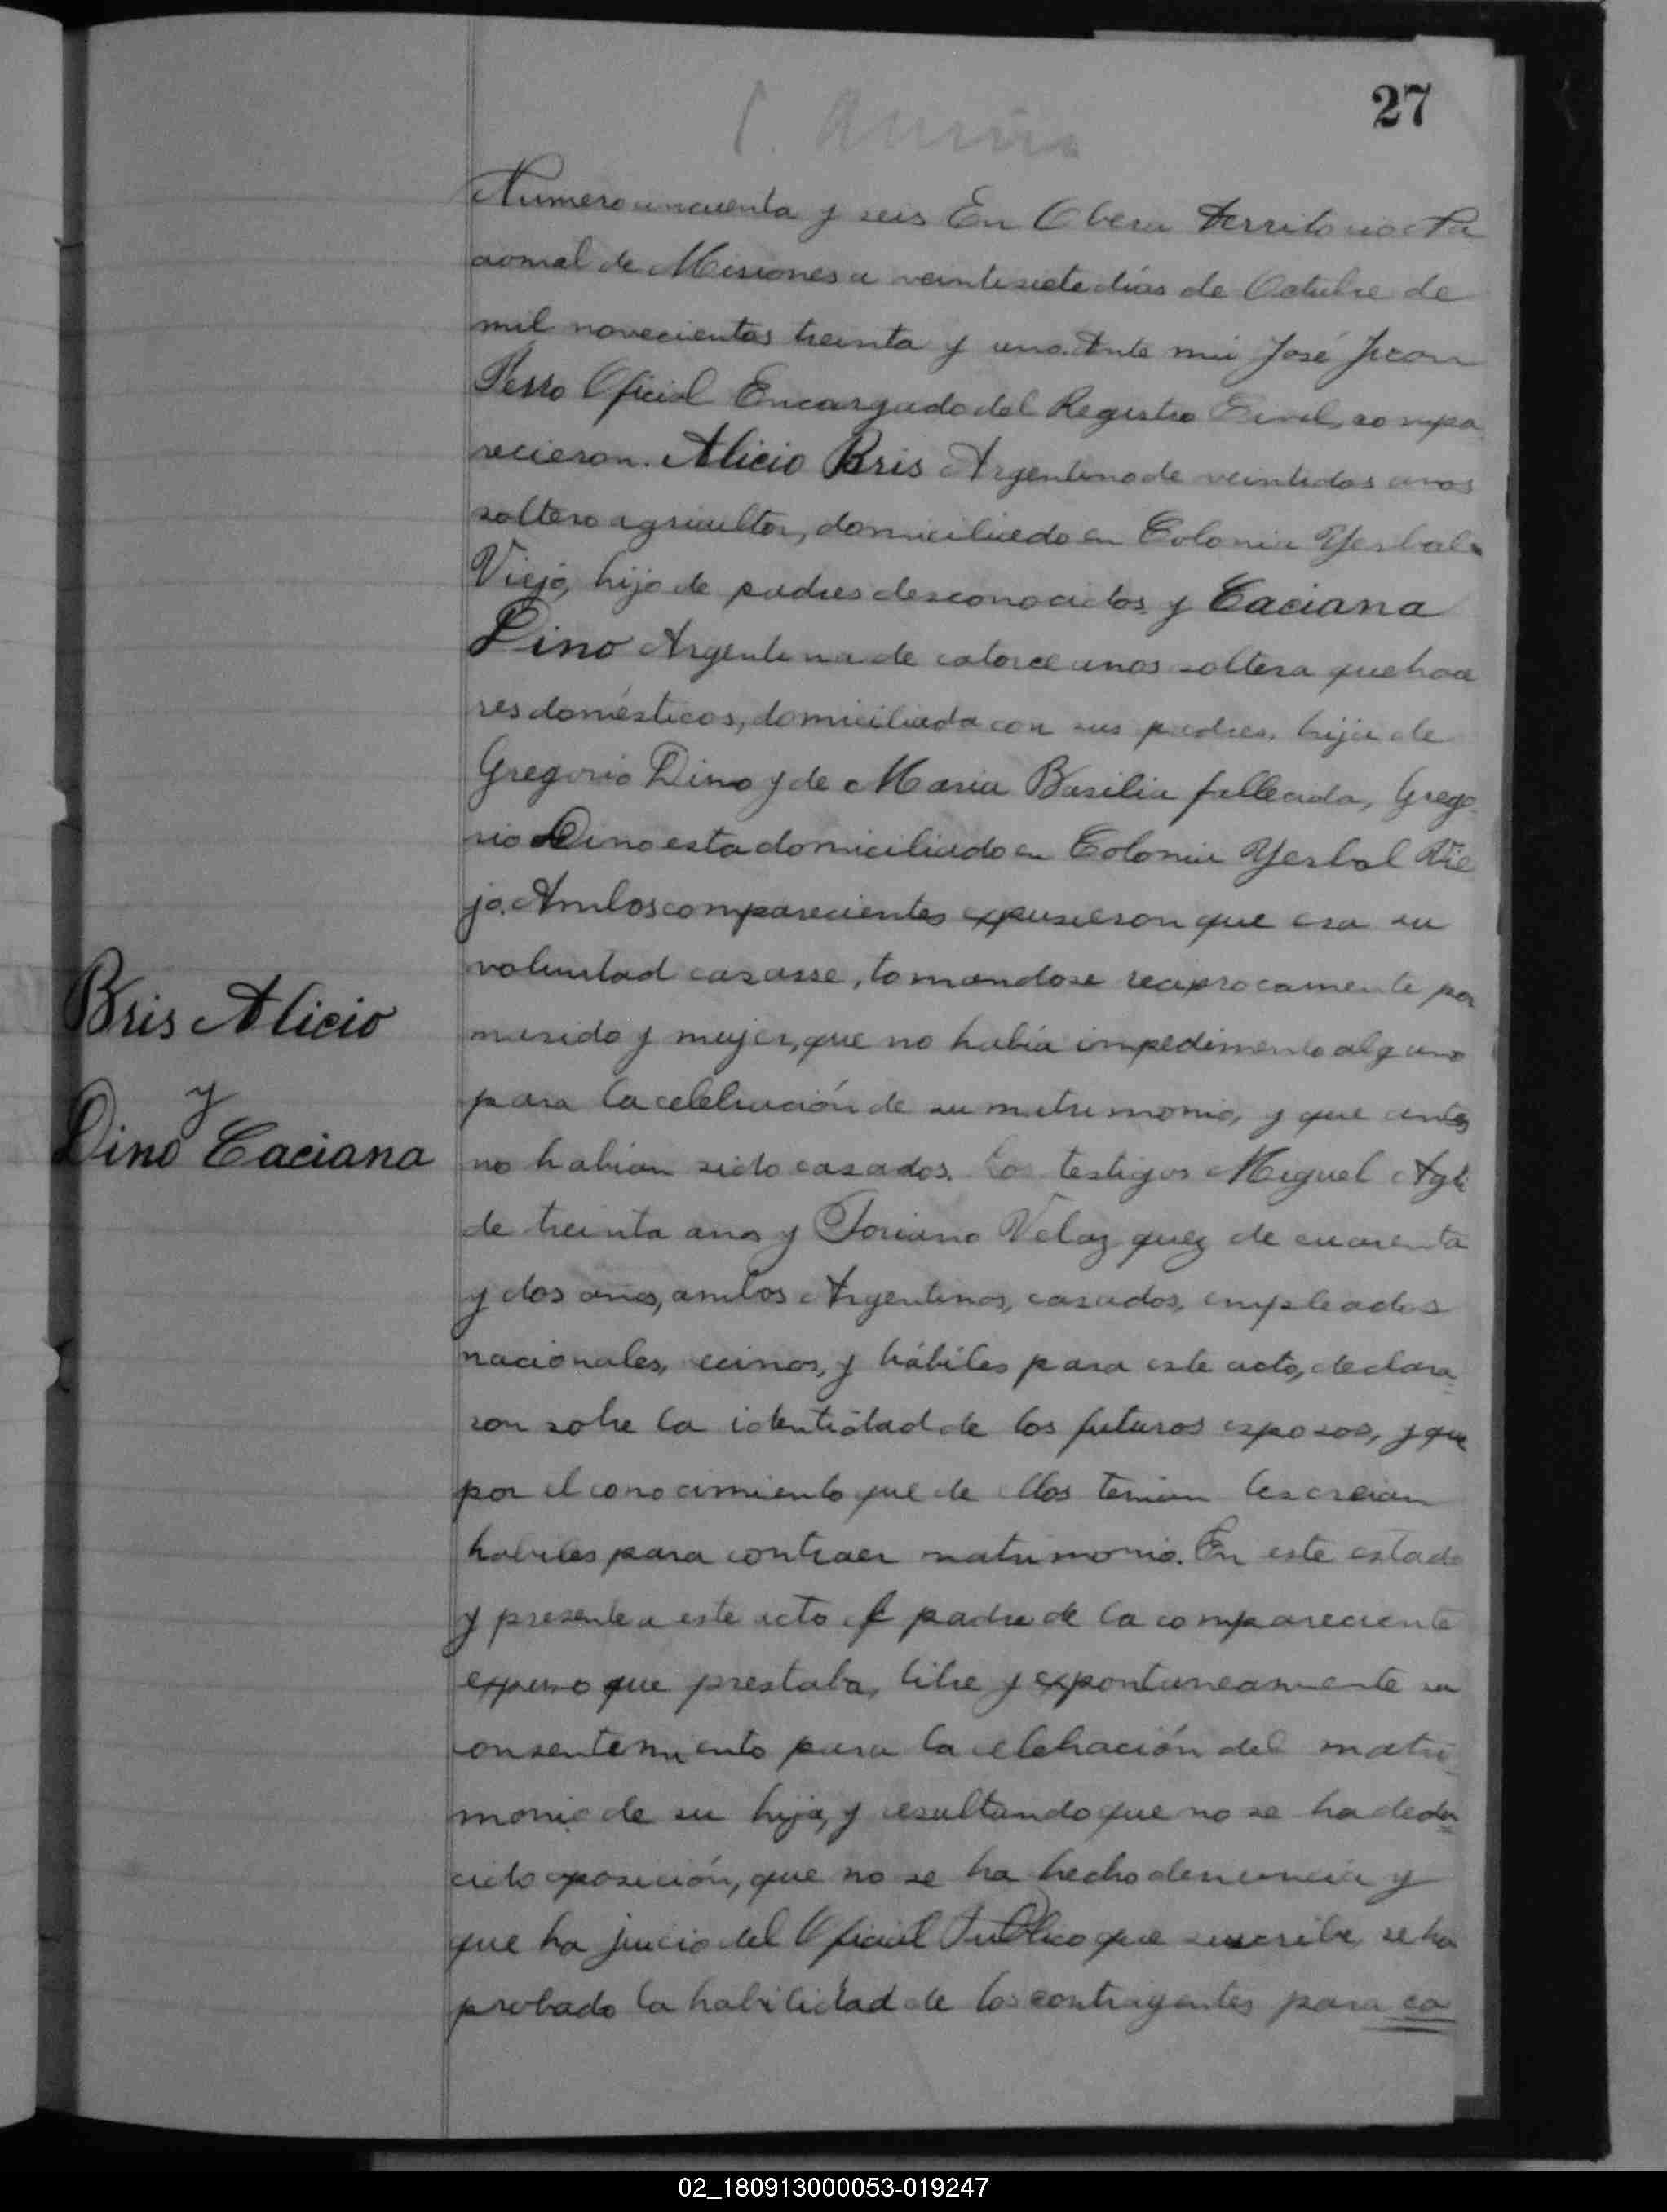 27
Numero cincuenta y seis En Obera Territorio Na
cional de Misiones a veintisiete dias de Octubre de
mil novecientos treinta y uno. Ante mi José Juan
Oficial Encargado del Registro Civil, compa
recieron. Alicio Bris Argentino de veintidos anos
soltero agricultor, domiciliado en Colonia Yerbal
Viejo, hijo de padres desconocidos y Caciana
Dino Argentina de catorce anos soltera quehace
res domésticos, domiciliada con sus padres, hija de
Gregorio Dino y de Maria Basilia fallecida, Grego
rio Dino esta domiciliado en Colonia Yerbal Vie
jo. Ambos comparecientes expusieron que era su
voluntad casarse, tomandose reciprocamente por
marido y mujer, que no habia impedimento alguno
para la celebración de su matrimonio, y que antes
no habian sido casados. Los testigos Miguel
de treinta anos y Toriano Velazquez de cuarenta
y dos años, ambos Argentinos, casados, empleados
nacionales, vecinos, y hábiles para este acto, declara
ron sobre la identidad de los futuros esposos, y que
por el conocimiento que de ellos tenian les creian
habiles para contraer matrimonio. En este estado
y presente a este acto el padre de la compareciente
expuso que prestaba, libre y expontaneamente su
consentemiento para la celebración del matri
monio de su hija, y resultando que no se ha dedu
cido oposición, que no se ha hecho denuncia y
que ha juicio del Oficial Publico que suscribe, se ha
probado la habilidad de los contrayentes para ca
Bris Alicio
y
Dino Caciana
02_180913000053-019247